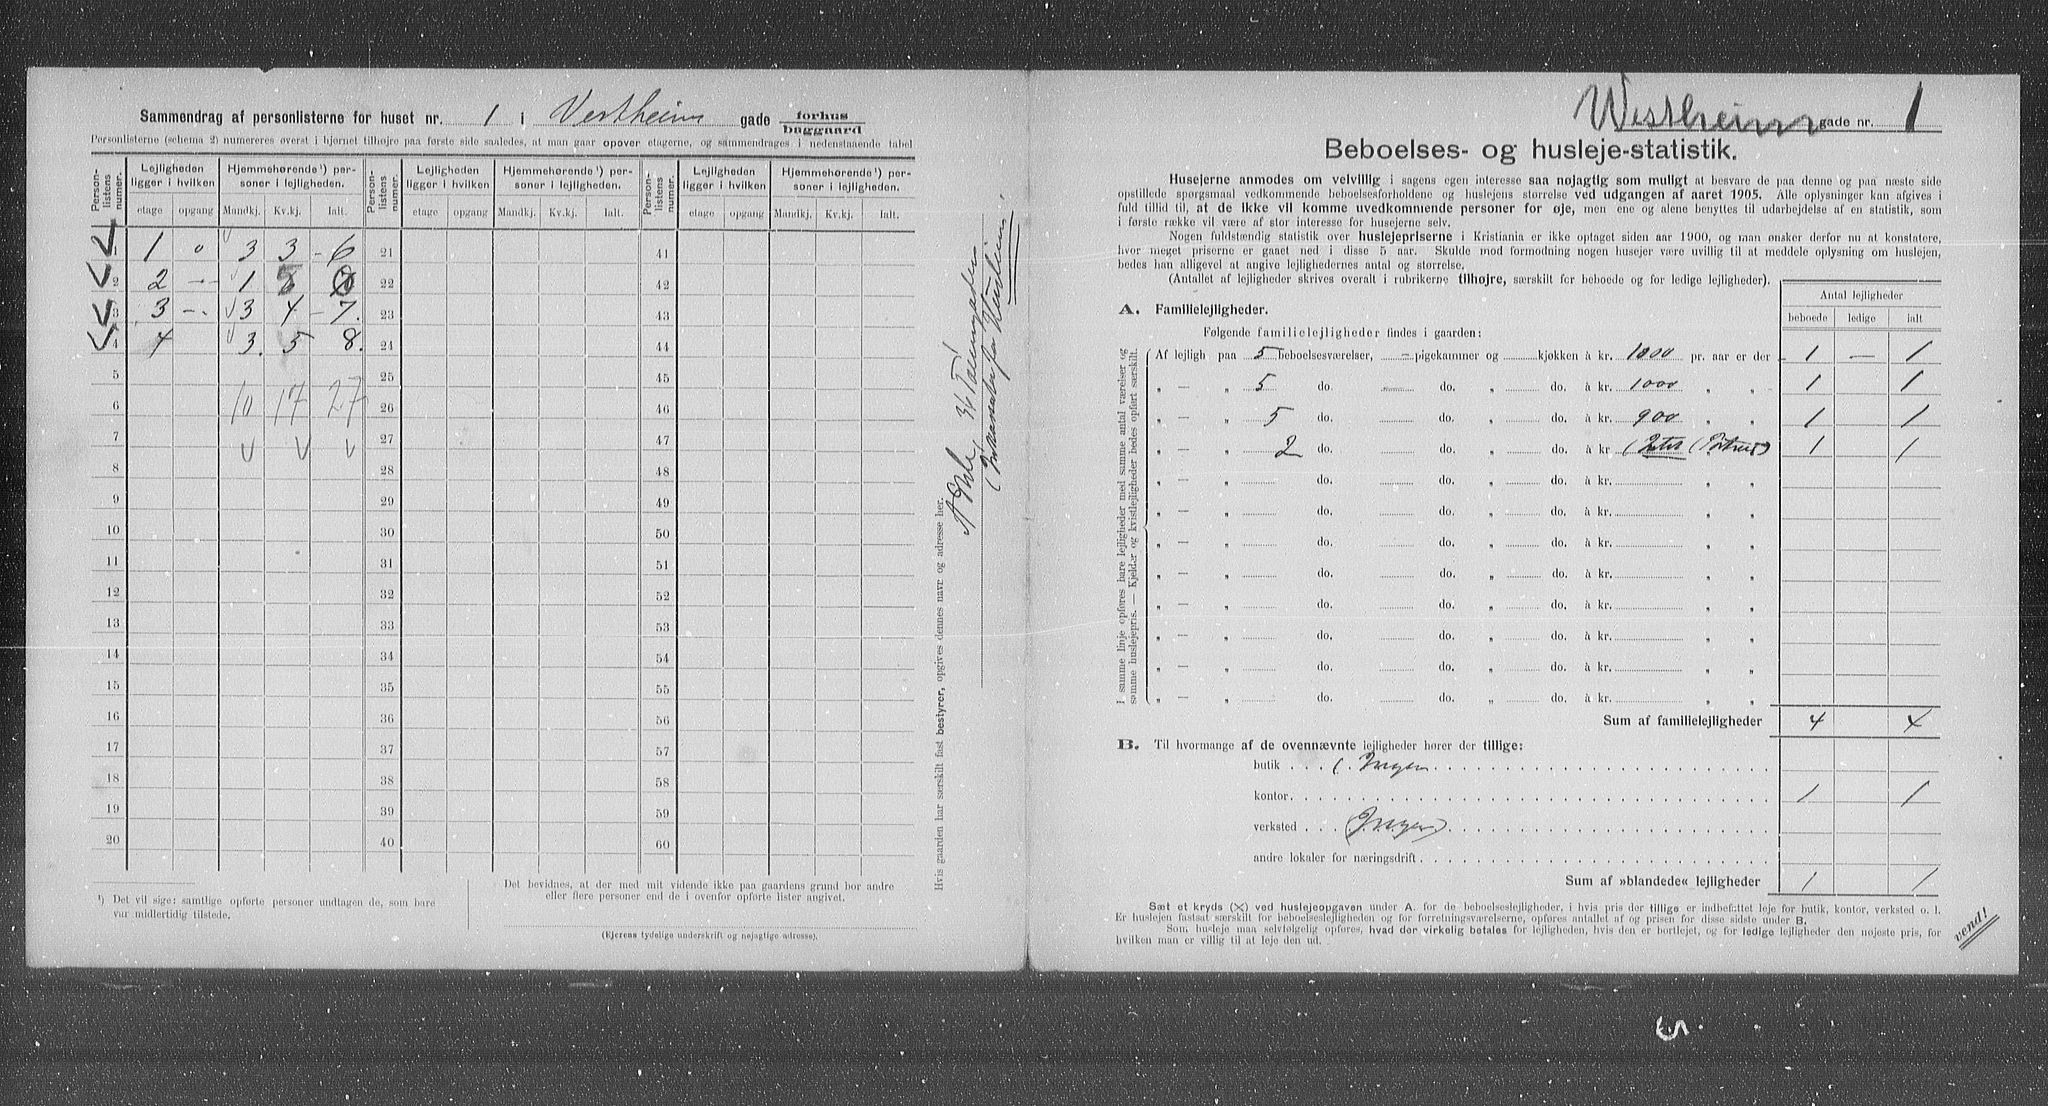 Sammendrag af personlisterne for huset nr. 1 i Vestheim gade forhus
baggaard
Personlisterne (schema 2) numereres øverst i hjørnet tilhøjre paa første side saaledes, at man gaar opover etagerne, og sammendrages i nedenstaaende tabel
Person-listens numer. Lejligheden ligger i hvilken Hjemmehørende¹) personer i lejligheden. Person-listens numer. Lejligheden ligger i hvilken Hjemmehørende¹) personer i lejligheden. Person-listens numer. Lejligheden ligger i hvilken Hjemmehørende¹) personer i lejligheden.
etage opgang Mandkj. Kv.kj. Ialt. etage opgang Mandkj. Kv.kj. Ialt. etage opgang Mandkj. Kv.kj. Ialt.
1 1 o 3 3 - 6 21 41
2 2 -- 1 5 22 42
3 3 -- 3 4 - 7. 23 43
4 4 3. 5 8. 24 44
5 25 45
6 10 17 27 26 46
7 v v v 27 47
8 28 48
9 29 49
10 30 50
11 31 51
12 32 52
13 33 53
14 34 54
15 35 55
16 36 56
17 37 57
18 38 58
19 39 59
20 40 60
¹) Det vil sige: samtlige opførte personer undtagen de, som bare
var midlertidig tilstede.
Det bevidnes, at der med mit vidende ikke paa gaardens grund bor andre
eller flere personer end de i ovenfor opførte lister angivet.
(Ejerens tydelige underskrift og nøjagtige adresse).
Hvis gaarden har særskilt fast bestyrer, opgives dennes navn og adresse her.
Vestheim gade nr. 1
Beboelses- og husleje-statistik.
Husejerne anmodes om velvillig i sagens egen interesse saa nøjagtig som muligt at besvare de paa denne og paa næste side
opstillede spørgsmaal vedkommende beboelsesforholdene og huslejens størrelse ved udgangen af aaret 1905. Alle oplysninger kan afgives i
fuld tillid til, at de ikke vil komme uvedkommende personer for øje, men ene og alene benyttes til udarbejdelse af en statistik, som
i første række vil være af stor interesse for husejerne selv.
Nogen fuldstændig statistik over huslejepriserne i Kristiania er ikke optaget siden aar 1900, og man ønsker derfor nu at konstatere,
hvor meget priserne er gaaet ned i disse 5 aar. Skulde mod formodning nogen husejer være uvillig til at meddele oplysning om huslejen,
bedes han alligevel at angive lejlighedernes antal og størrelse.
(Antallet af lejligheder skrives overalt i rubrikerne tilhøjre, særskilt for beboede og for ledige lejligheder).
Antal lejligheder
beboede ledige ialt
A. Familielejligheder.
Følgende familielejligheder findes i gaarden:
I samme linje opføres bare lejligheder med samme antal værelser og
samme huslejepris. — Kjelder og kvistlejligheder bedes opført særskilt.
Af lejligh paa 5 beboelsesværelser, - pigekammer og kjøkken à kr. 1000 pr. aar er der 1 — 1
„ — „ 5 do. do. „ do. à kr. 1000 „ „ 1 1
„ — „ 5 do. do. „ do. à kr. 900 „ „ 1 1
„ — „ 2 do. do. „ do. à kr. 1 1
„ — „ do. do. „ do. à kr. „ „
„ — „ do. do. „ do. à kr. „ „
„ — „ do. do. „ do. à kr. „ „
„ — „ do. do. „ do. à kr. „ „
„ — „ do. do. „ do. à kr. „ „
„ — „ do. do. „ do. à kr. „ „
„ — „ do. do. „ do. à kr. „ „
„ — „ do. do. „ do. à kr. „ „
Sum af familielejligheder 4 4
B. Til hvormange af de ovennævnte lejligheder hører der tillige:
butik . . . (Ingen
kontor. 1 1
verksted . . . (Ingen)
andre lokaler for næringsdrift
Sum af »blandede« lejligheder 1 1
Sæt et kryds (×) ved huslejeopgaven under A. for de beboelseslejligheder, i hvis pris der tillige er indbefattet leje for butik, kontor, verksted o. l.
Er huslejen fastsat særskilt for beboelseslejligheden og for forretningsværelserne, opføres antallet af og prisen for disse sidste under B.
Som husleje maa selvfølgelig opføres, hvad der virkelig betales for lejligheden, hvis den er bortlejet, og for ledige lejligheder den nøjeste pris, for
hvilken man er villig til at leje den ud.
vend!